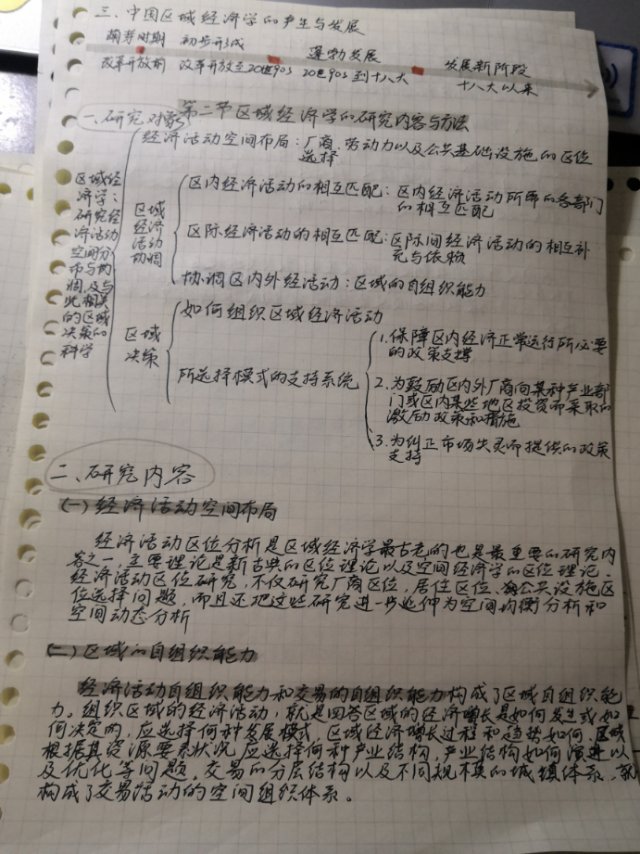 三、中国区域经济学的产生与发展
萌芽时期 初步形成 蓬勃发展 发展新阶段
改革开放前 改革开放至20世纪90s 20世纪90s到十八大 十八大以来
第二节区域经济学的研究内容与方法
一、研究对象
区域经济学：研究经济活动空间分布与协调及与此相关的区域决策的科学
经济活动空间布局：厂商、劳动力以及公共基础设施的区位
选择
区域经济活动协调
区内经济活动的相互匹配：区内经济活动所即的各部门
的相互匹配
区际经济活动的相互匹配：区际间经济活动的相互补
充与依赖
协调区内外经济活动：区域的自组织能力
区域决策
如何组织区域经济活动
所选择模式的支持系统
1.保障区内经济正常运行所必要
的政策支撑
2.为鼓励区内外厂商向某种产业部
门或区内某些地区投资而采取的
激励政策和措施
3.为纠正市场失灵而提供的政策
支持
二、研究内容
(一)经济活动空间布局
经济活动区位分析是区域经济学最古老的也是最重要的研究内
容之一，主要理论是新古典的区位理论以及空间经济学的区位理论。
经济活动区位研究，不仅研究厂商区位，居住区位、公共设施区
位选择问题，而且还把这些研究进一步延伸为空间均衡分析和
空间动态分析
(二)区域的自组织能力
经济活动自组织能力和交易的自组织能力构成了区域自组织能
力。组织区域的经济活动，就是回答区域的经济增长是如何发生或如
何决定的，应选择何种发展模式，区域经济增长过程和趋势如何，区域
根据其资源要素状况应选择何种产业结构，产业结构如何演进以
及优化等问题。交易的分层结构以及不同规模的城镇体系，就
构成了交易活动的空间组织体系。